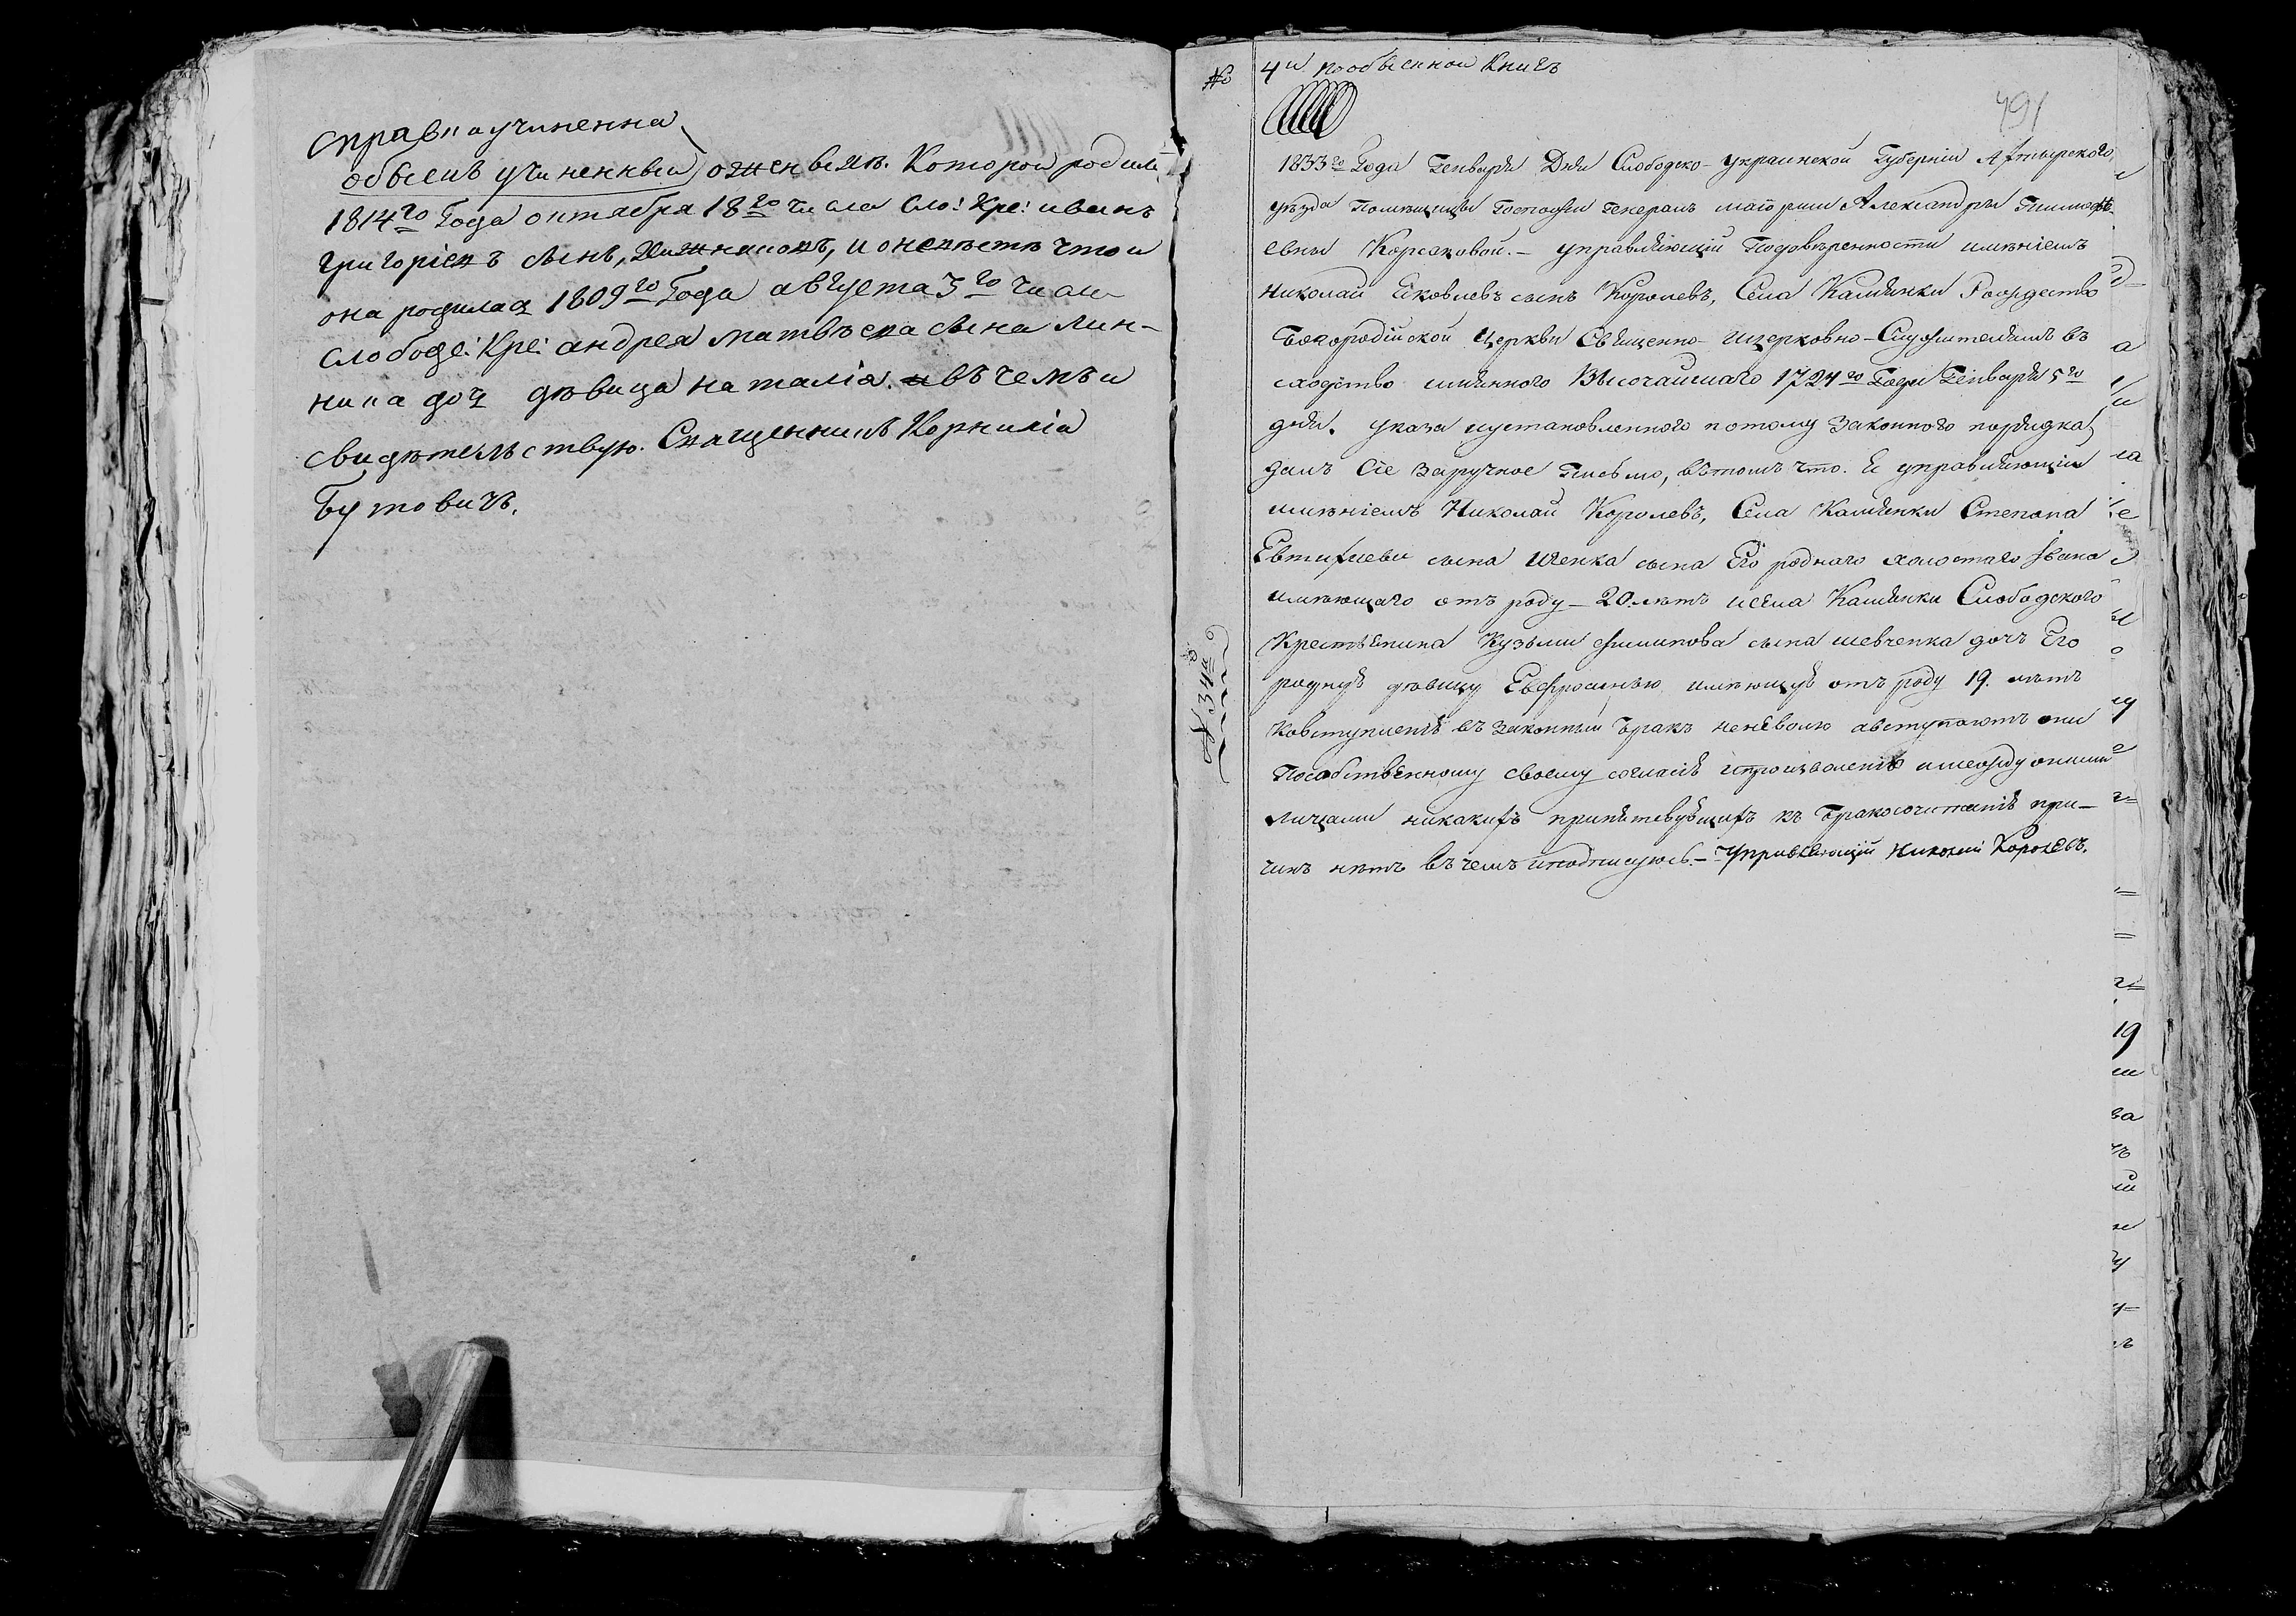 справка учиненна
обыскъ учиненный о женихѣ. Которой родил
1814го Года октября 18го числа Сло: Кре: иванъ
григоріевъ сынъ, и о невѣстѣ что и
она родилас 1809го Года августа 3го числ
слободе: Кре: андрея матвѣева сына Лин-
ника доч девица наталія. въ чемъ и
свидѣтельствую. Священникъ Корнилій
Бутовичъ.
№ 4й по обыскной Книгѣ
491
1833го Года Генваря Дня Слободско-Украинской Губерніи Ахтырского
уѣзда Помѣщицы Госпожи Генералъ маіорши Александры Тимофѣ-
евны Корсаковой. – управляющій По довѣренности имѣніемъ
Николай Яковлевъ сынъ Королевъ, Села Камянки Рождество
Богородійской Церкви Священно- ицерковно-Служителямъ въ
сходство имянного Высочайшаго 1724го Года Генваря 5го
дня. указа иустановленного потому Законного порядка,
далъ Сіе заручное Письмо, втомъ что. Я управляющій
имѣніемъ Николай Королевъ, Села Камянки Степана
Евтифіева сына сына Его роднаго холостаго Івана
имѣющаго отъ роду – 20. лѣтъ исела Камянки Слободского
Крестьянина Кузьмы Филипова сына шевченка дочъ Его
родную дѣвицу Евфросинью имѣющую отъ роду 19. лѣтъ
ковступленію въ законный бракъ неневолю авступаютъ они
Пособственному своему согласію ипроизволенію имежду оними
лицами никакихъ припятсвующихъ къ Бракосочитанію при-
чинъ нѣтъ въчемъ иподписуюсь. – Управляющій Николай Королевъ.
№ 34й